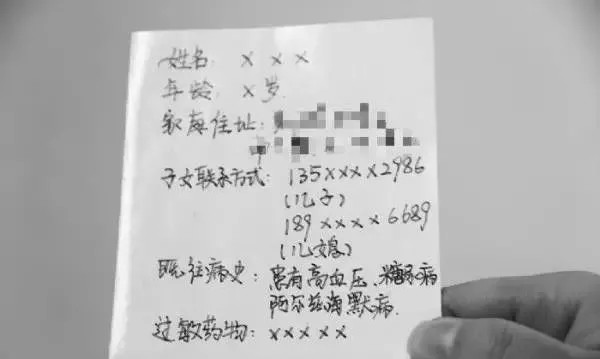 姓名: x x x
年龄: x 岁.
家庭住址:
子女联系方式: 135xxxx2986
(儿子)
189xxxx6689
(儿媳)
既往病史: 患有高血压、糖尿病
阿尔兹海默病.
过敏药物: xxxxx